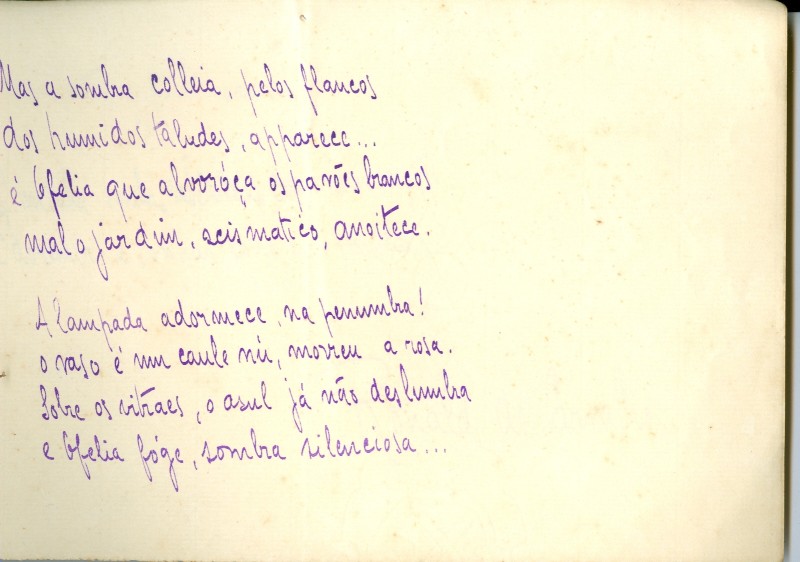 Mas a sombra colleia, pelos flancos
dos humidos taludes, apparece...
é Ofelia que alvoróça os pavões brancos
mal o jardim, scismatico, anoitece.
A lampada adormece, na penumbra!
o vaso é um caule nú, morreu a rosa.
Sobre os vitraes, o asul já não deslumbra
e Ofelia fóge, sombra silenciosa...